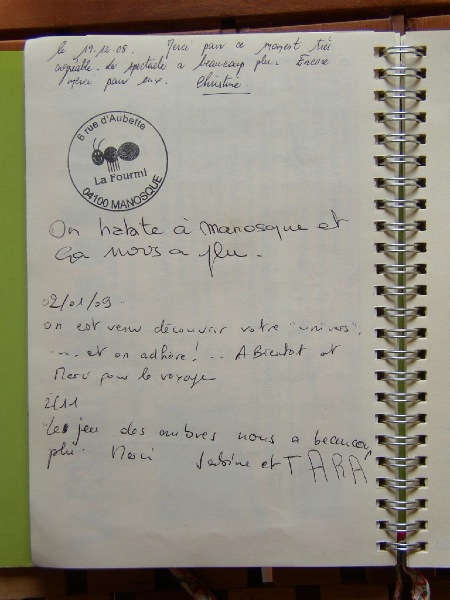 le 19.12.08. Merci pour ce moment très
agréable. Le spectacle a beaucoup plu. Encore
merci pour eux. Christine.
6 rue d'Aubette
La Fourmi
04100 MANOSQUE
On habite à manosque et
ça nous a plu.
02/01/09.
on est venu découvrir votre "univers",
.... et on adhère! ... A Bientot et
Merci pour le voyage
2/11
Les jeu des ombres nous a beaucoup
plu. Merci Sabine et TARA